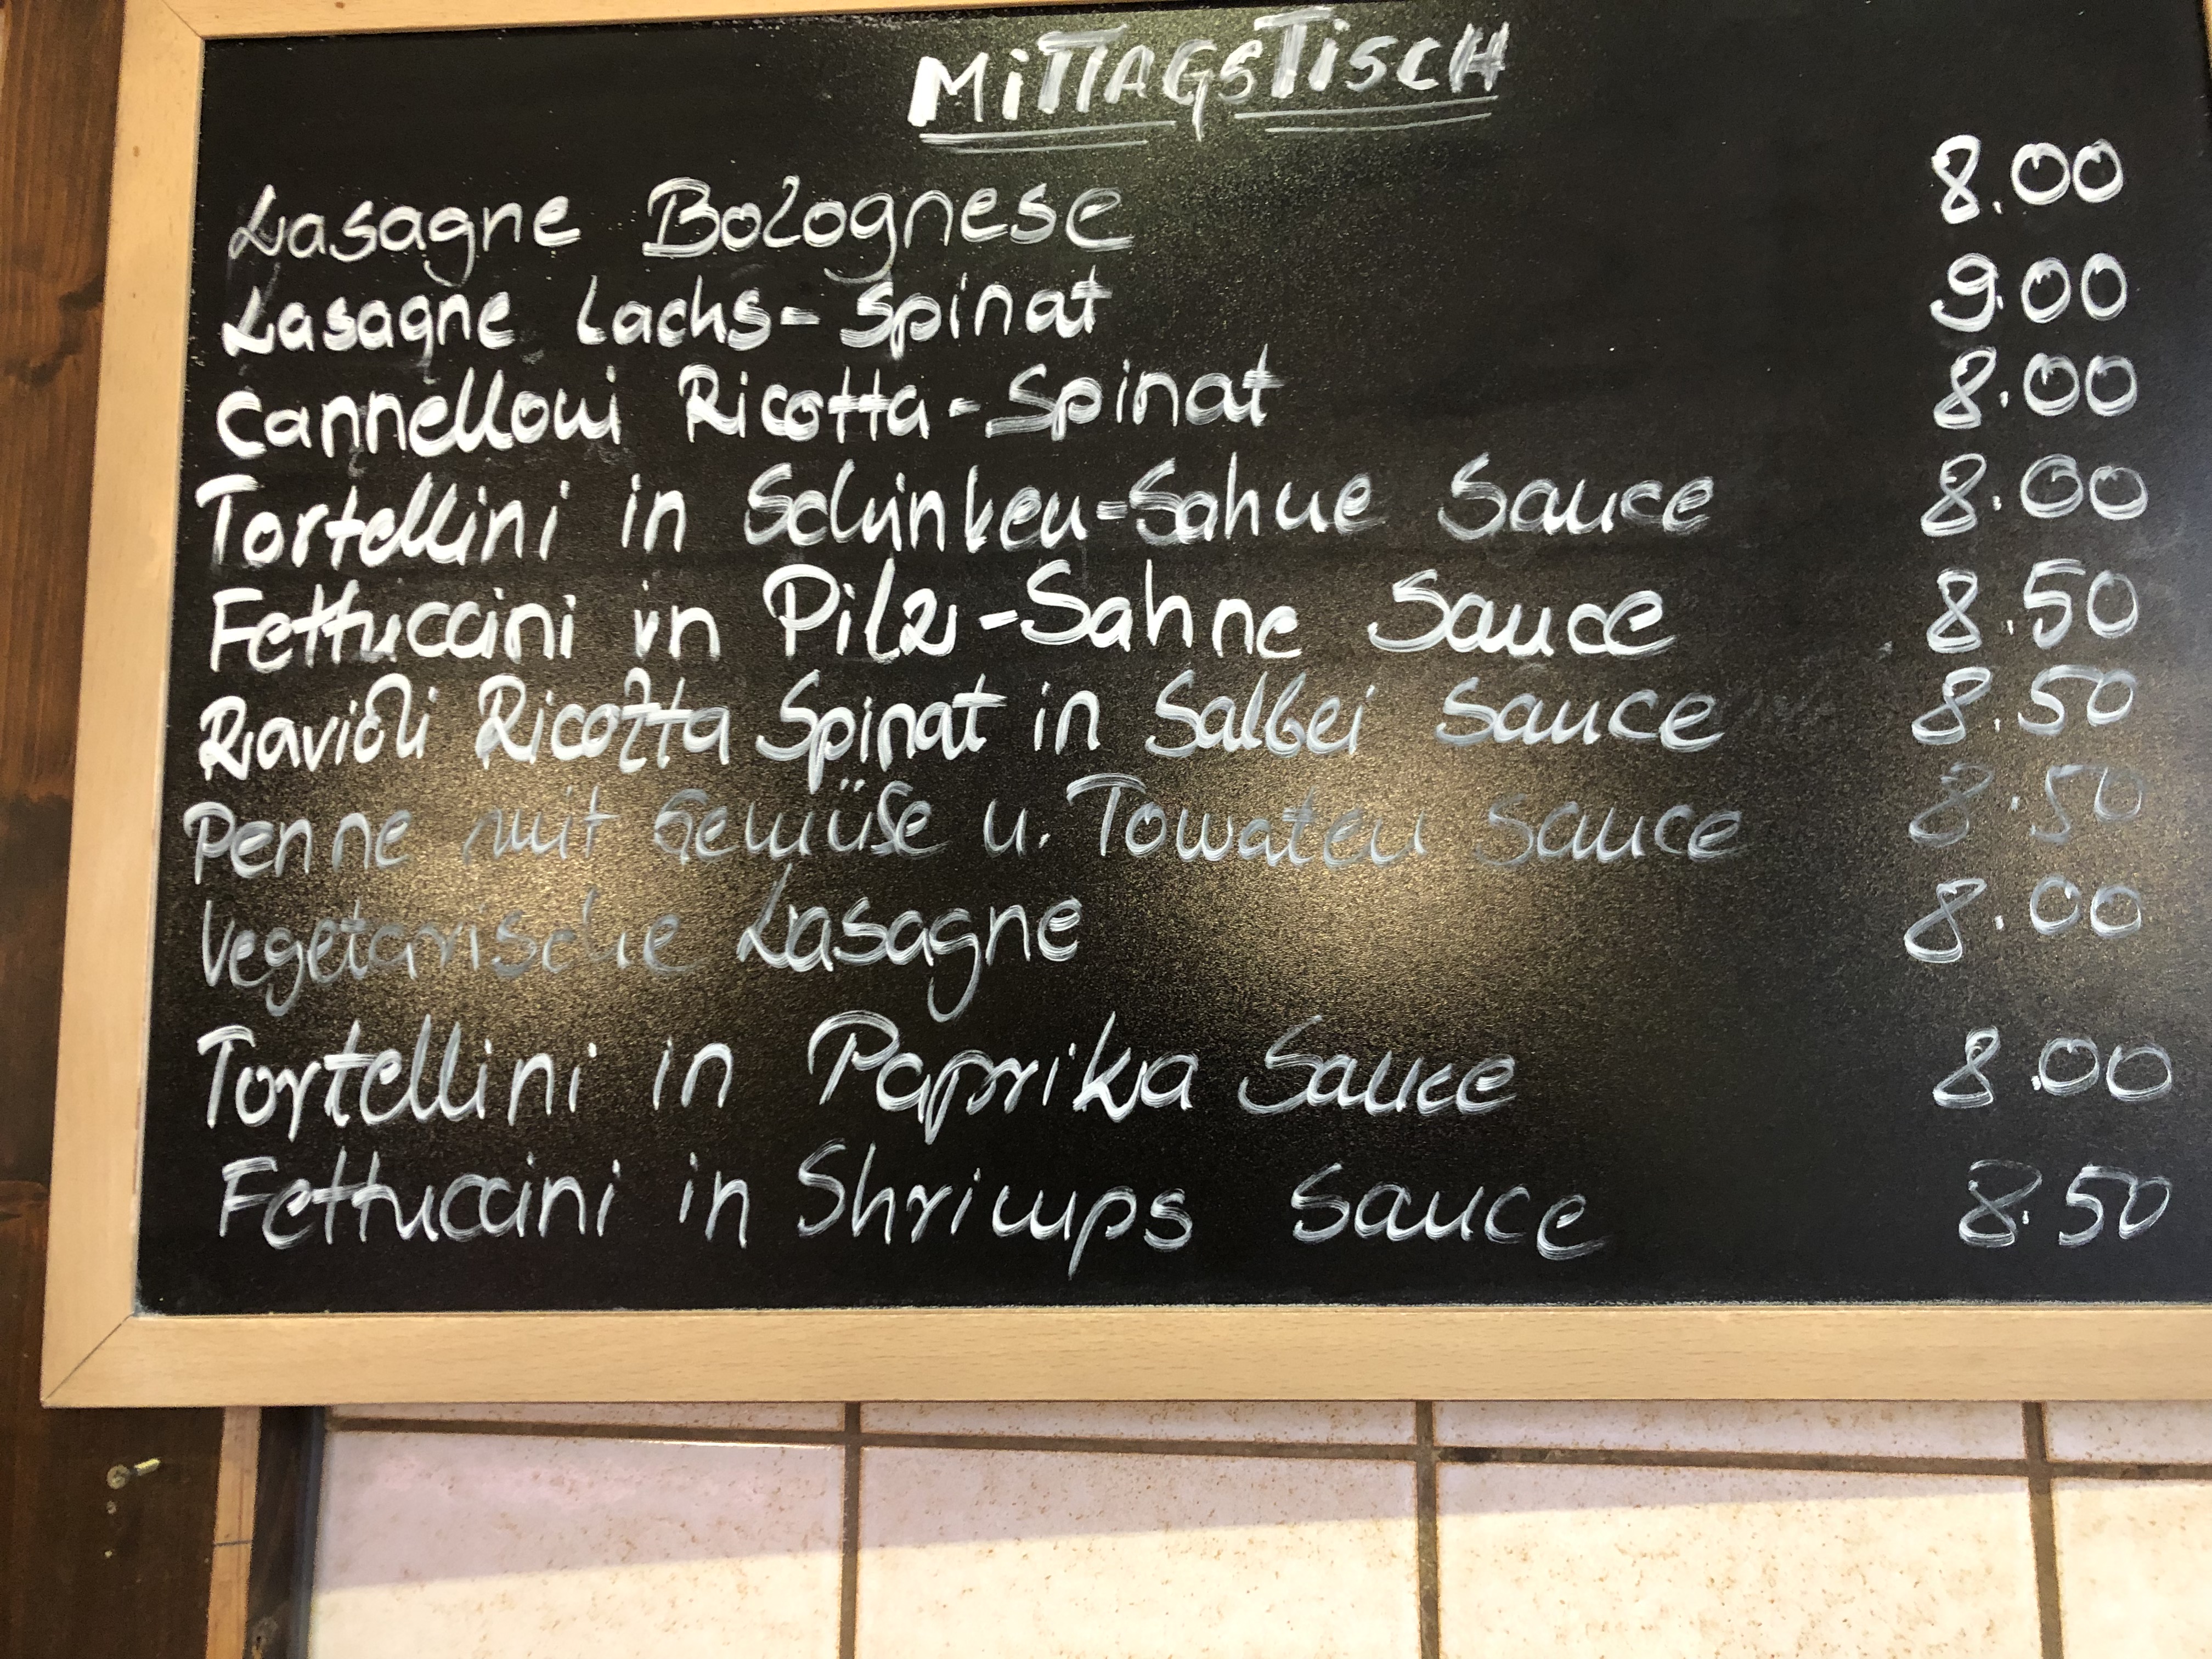 MiTTAGSTiSCH
Lasagne Bolognese 8.00
Lasagne Lachs-Spinat 9.00
Cannelloni Ricotta-Spinat 8.00
Tortellini in Schinken-Sahne Sauce 8.00
Fettuccini in Pilz-Sahne Sauce 8.50
Ravioli Ricotta Spinat in Salbei Sauce 8.50
Penne mit Gemüse u. Tomaten Sauce 8.50
Vegetarische Lasagne 8.00
Tortellini in Paprika Sauce 8.00
Fettuccini in Shrimps Sauce 8.50